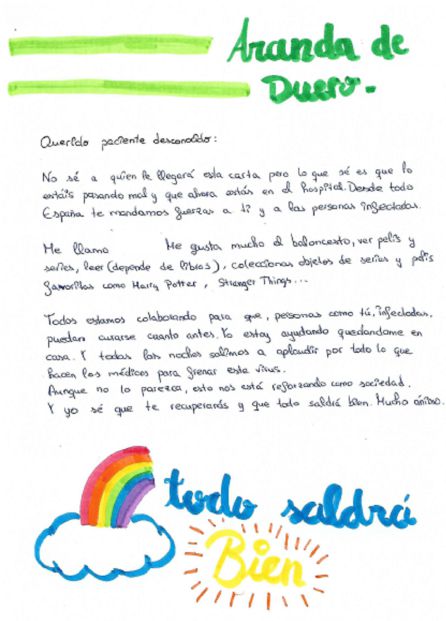 Aranda de
Duero.
Querido paciente desconocido:
No sé a quien le llegará esta carta pero lo que sé es que lo
estáis pasando mal y que ahora estás en el hospital. Desde todo
España te mandamos fuerzas a ti y a las personas infectadas.
Me llamo Me gusta mucho el baloncesto, ver pelis y
series, leer (depende de libros), coleccionar objetos de series y pelis
favoritas como Harry Potter, Stranger Things...
Todos estamos colaborando para que, personas como tú, infectadas.
puedan curarse cuanto antes. Yo estoy ayudando quedandome en
casa. Y todas las noches salimos a aplaudir por todo lo que
hacen los médicos para frenar este virus.
Aunque no lo parezca, esto nos está reforzando como sociedad.
Y yo sé que te recuperarás y que todo saldrá bien. Mucho ánimo.
todo saldrá
Bien